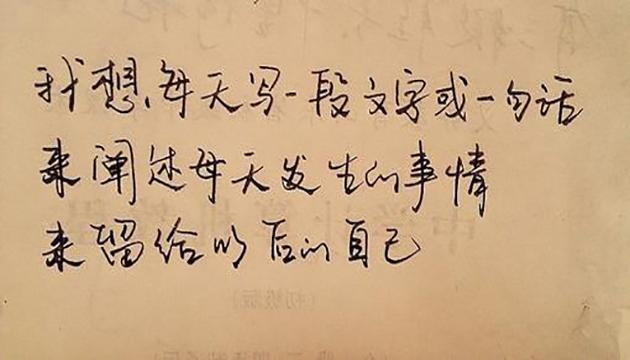 我想每天写一段文字或一句话
来阐述每天发生的事情
来留给以后的自己